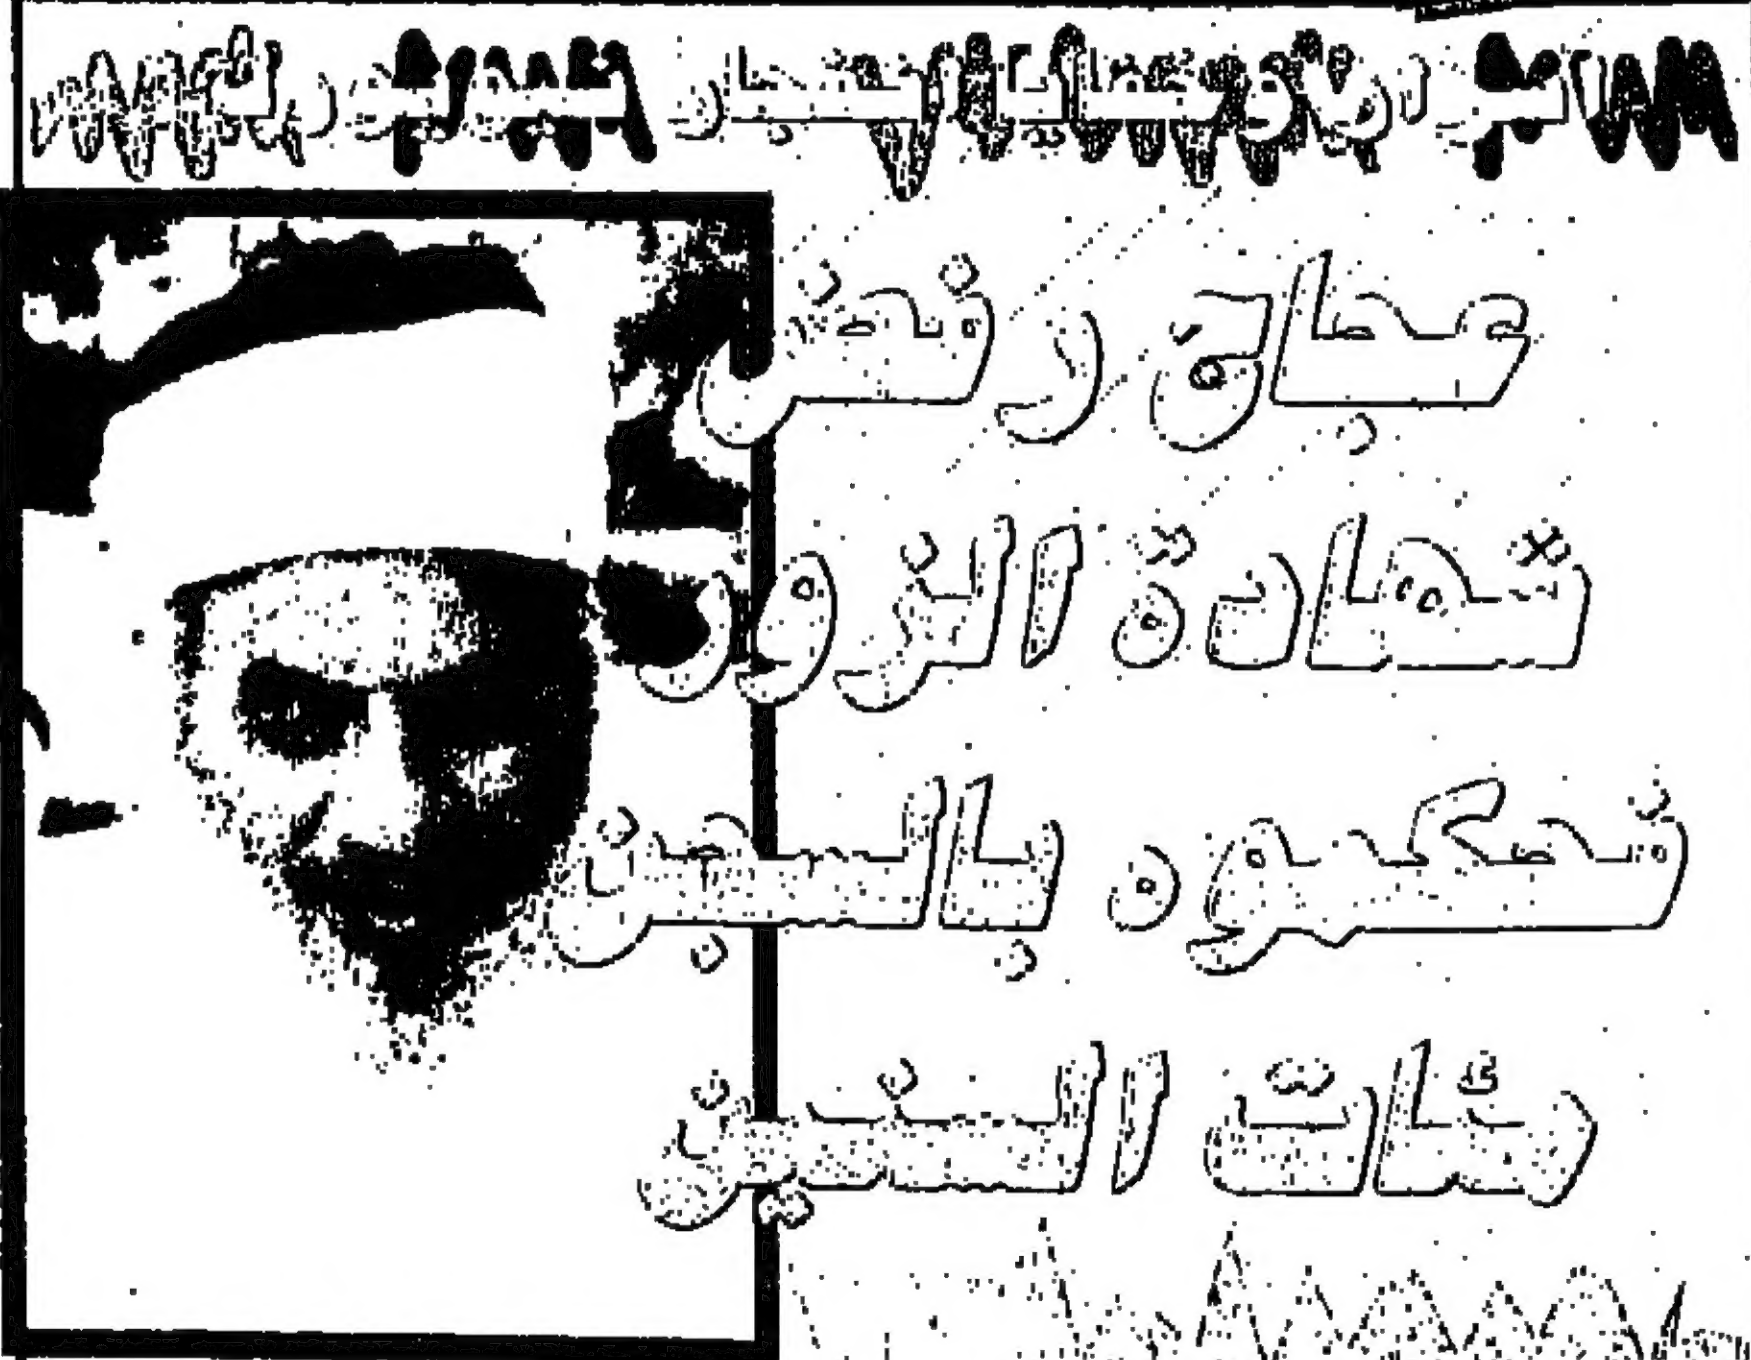 نيويورك
عجاج رفض
شهادة الزور
فحكموه بالسجن
مئات السنين